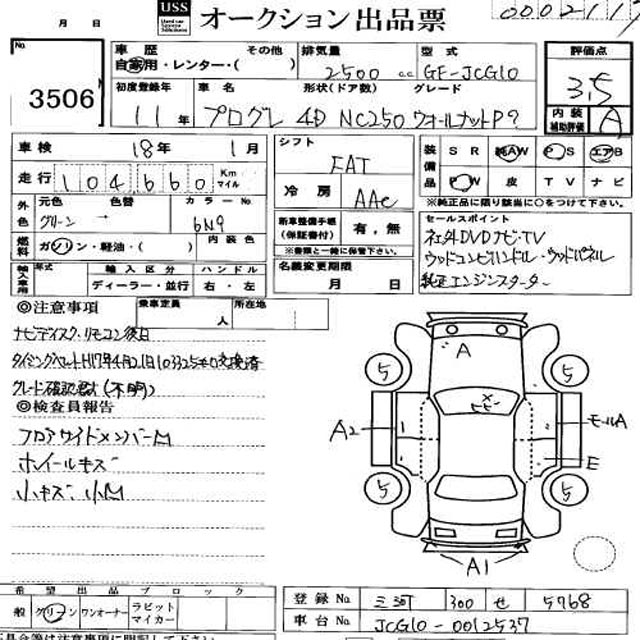 USS オークション 出品票
月 日
No.
3506
車歴 その他 排気量 型式
自家用・レンター・( ) 2500 cc GF-JCG10
初度登録年 車名 形状(ドア数) グレード
11年 プログレ 4D NC250 ウォールナットP?
評価点
3.5
内装補助評価 A
車検 18年 1月
走行 104,660 Km マイル
外色 元色 色替 カラー No.
グリーン → 6N9
燃料 ガソリン・軽油・( ) 内装色
輸入車用 年式 輸入区分 ハンドル
ディーラー・並行 右・左
乗車定員 人 所在地
シフト
FAT
冷房 AAC
新車整備手帳(保証書付) 有,無
※書類と一緒に保管下さい。
名義変更期限
月 日
装備品 SR 純AW PS エアB
PW 皮 TV ナビ
※純正品に限り該当に○をつけて下さい。
セールスポイント
社外DVDナビ・TV
ウッドコンビハンドル・ウッドパネル
純正エンジンスターター
◎注意事項
ナビディスク・リモコン後日
タイミングベルトH17年4月21日103325キロ交換済
グレード確認 (不明)
◎検査員報告
フロアサイドメンバーM
ホイールキズ
小キズ 小M
A
5 5
A2 モールA
E
5 5
A1
希望出品ブロック
般 グリーン ワンオーナー ラビットマイカー
登録No. 三河 300 せ 5768
車台No. JCG10-0012537